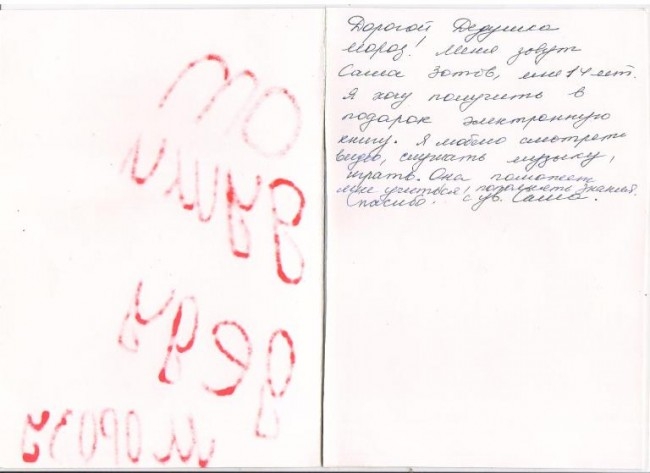 От
деду
морозу
Дорогой Дедушка
мороз! Меня зовут
Саша Зотов, мне 14 лет.
Я хочу получить в
подарок электронную
книгу. Я люблю смотреть
видео, слушать музыку,
играть. Она поможет
мне учиться, получать знания.
Спасибо. с ув. Саша.